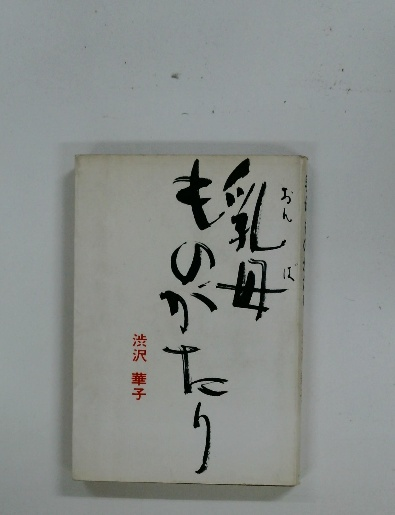 おんば
乳母
ものがたり
渋沢 華子